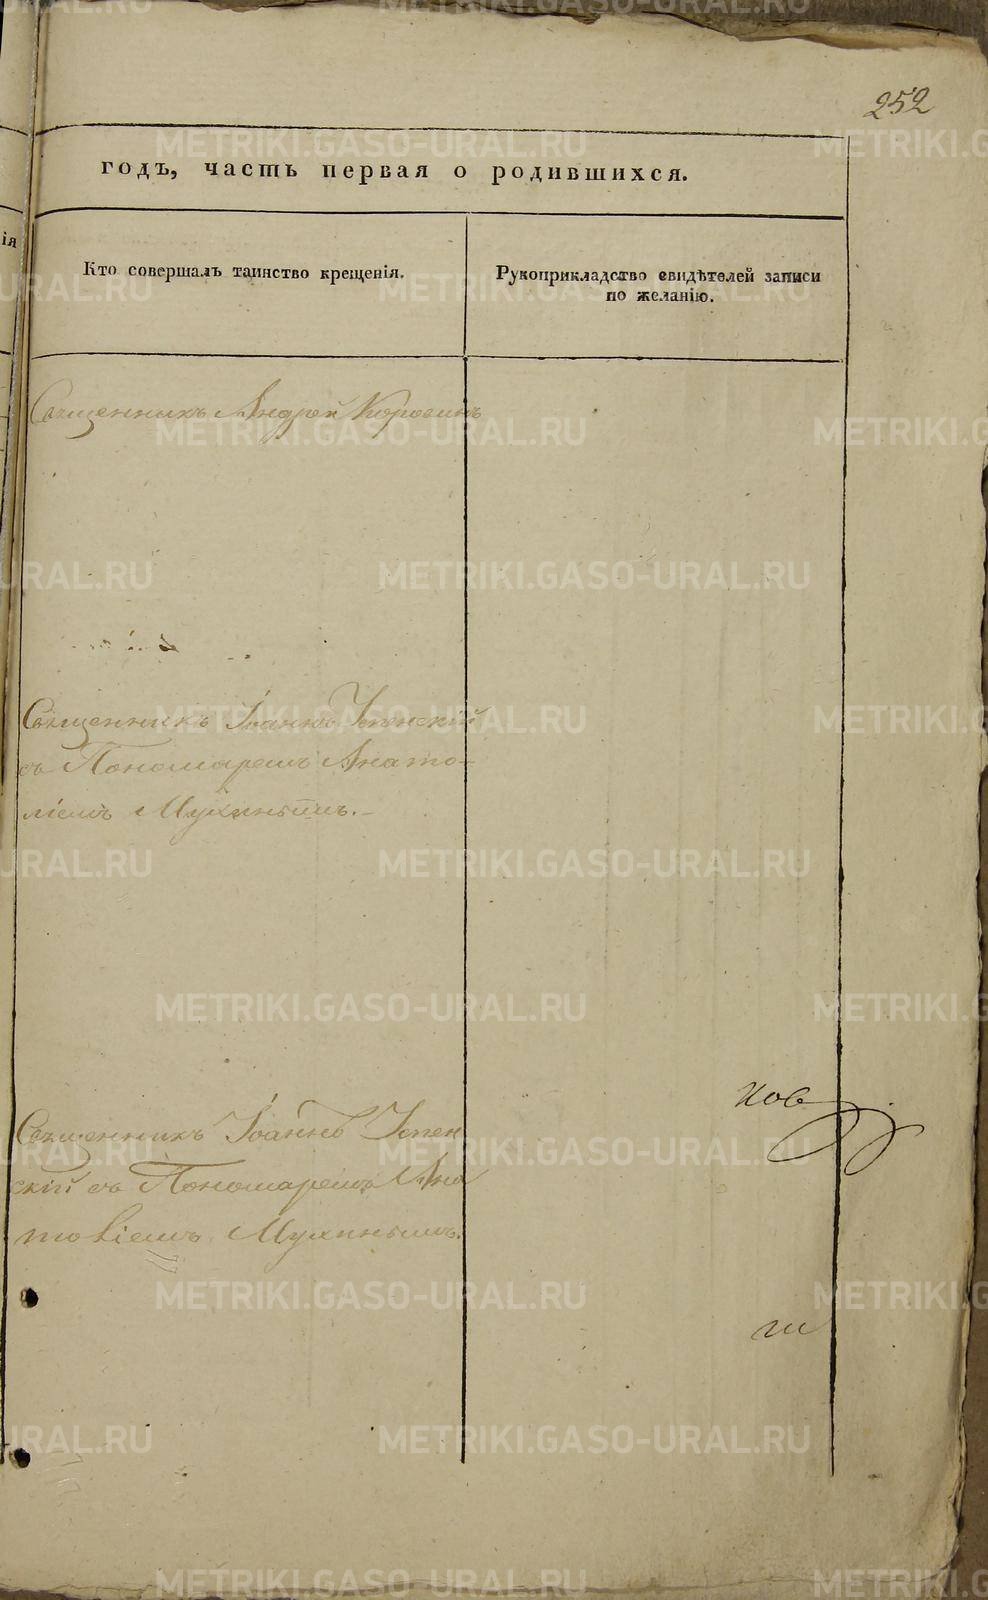 252
годъ, часть первая о родившихся.
ія
Кто совершалъ таинство крещенія.
Рукоприкладство свидѣтелей записи
по желанію.
Священникъ Андрей
Священникъ Іоаннъ Успенскій
съ Пономаремъ Анато-
ліемъ Мухинымъ.
ков
Священникъ Іоаннъ Успен
скій съ Пономаремъ Ана
толіемъ Мухинымъ.
METRIKI.GASO-URAL.RU